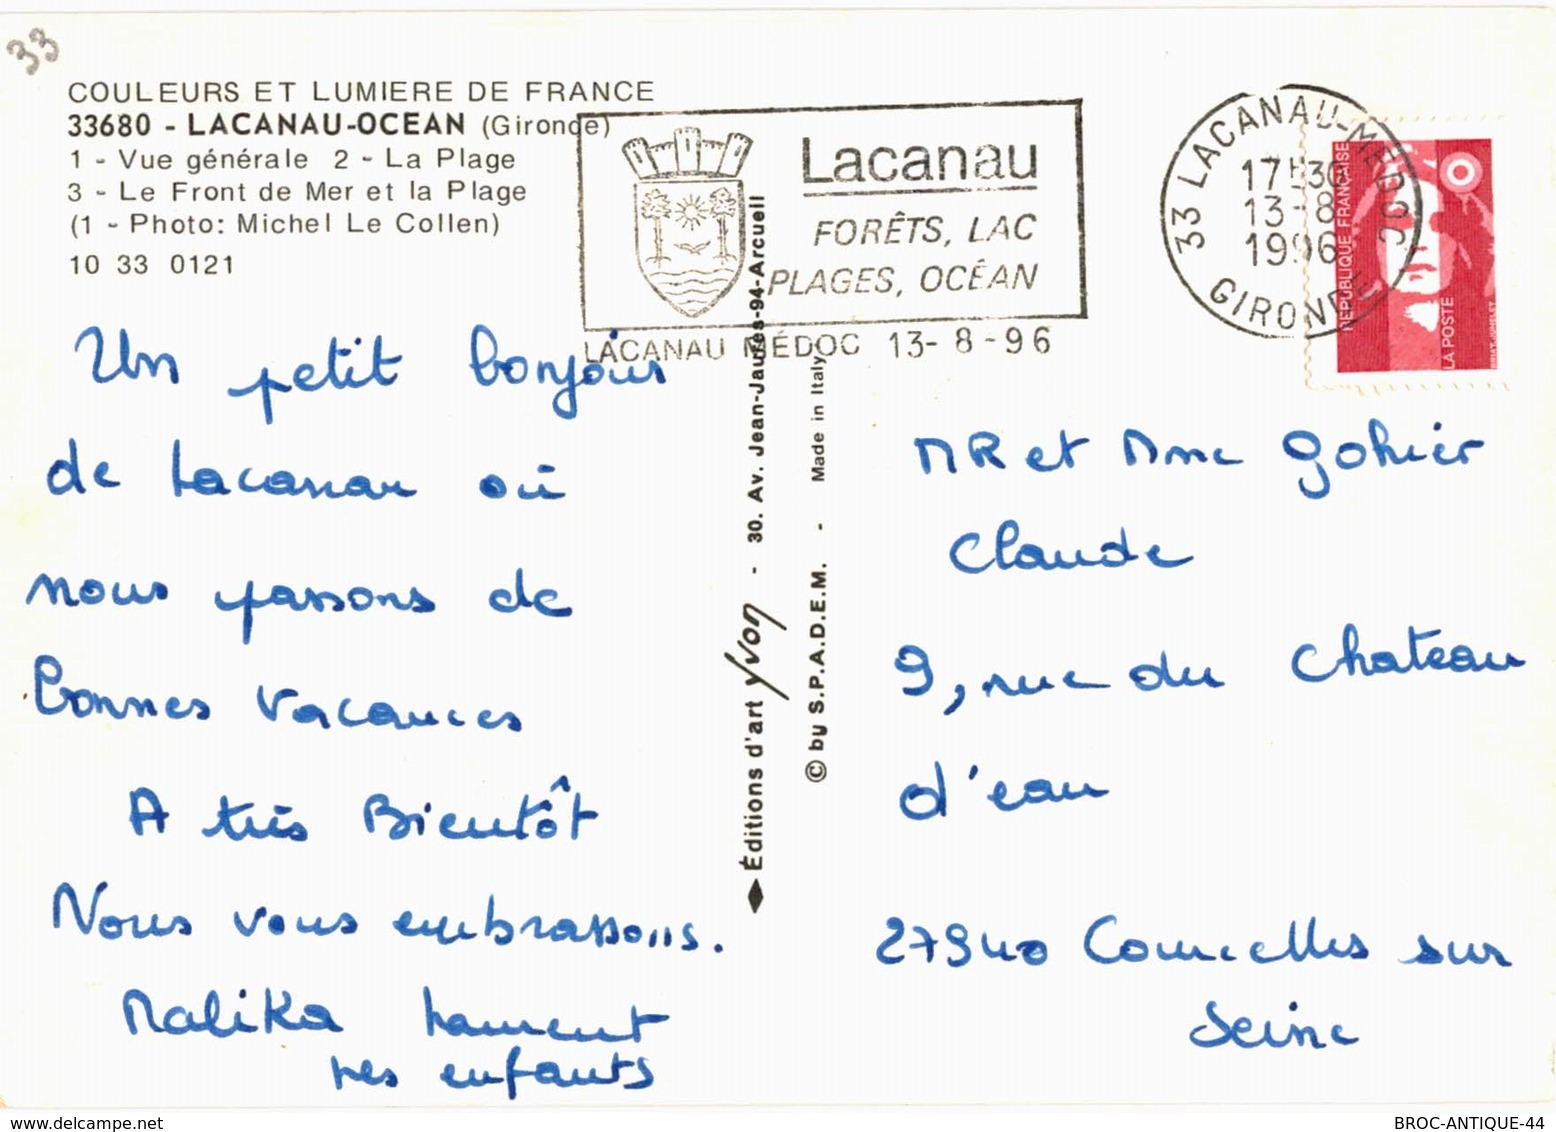 33
COULEURS ET LUMIERE DE FRANCE
33680 - LACANAU-OCEAN (Gironde)
1 - Vue générale 2 - La Plage
3 - Le Front de Mer et la Plage
(1 - Photo: Michel Le Collen)
10 33 0121
Lacanau
FORÊTS, LAC
PLAGES, OCÉAN
LACANAU MÉDOC 13-8-96
33 LACANAU-MEDOC
17H30
13-8
1996
GIRONDE
RÉPUBLIQUE FRANÇAISE
LA POSTE
Un petit bonjour
de Lacanau où
nous passons de
bonnes vacances
A très Bientôt
Nous vous embrassons.
Malika
nes enfants
Éditions d'art Yvon - 30. Av. Jean-Jaurès-94-Arcueil
© by S.P.A.D.E.M. - Made in Italy
MR et Mme Gohier
Claude
9, rue du Chateau
d'eau
27940 Courcelles sur
Seine
BROC-ANTIQUE-44